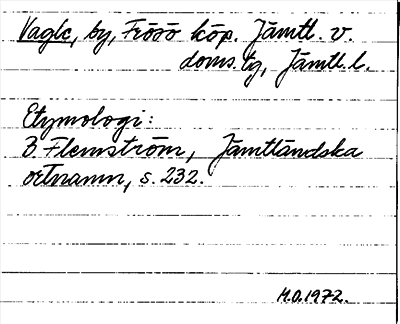 Vagle, by, Frösö köp. Jämtl. v.
doms. tg, Jämtl. l.
Etymologi:
B. Flemström, Jämtländska
ortnamn, s. 232.
M.O. 1972.